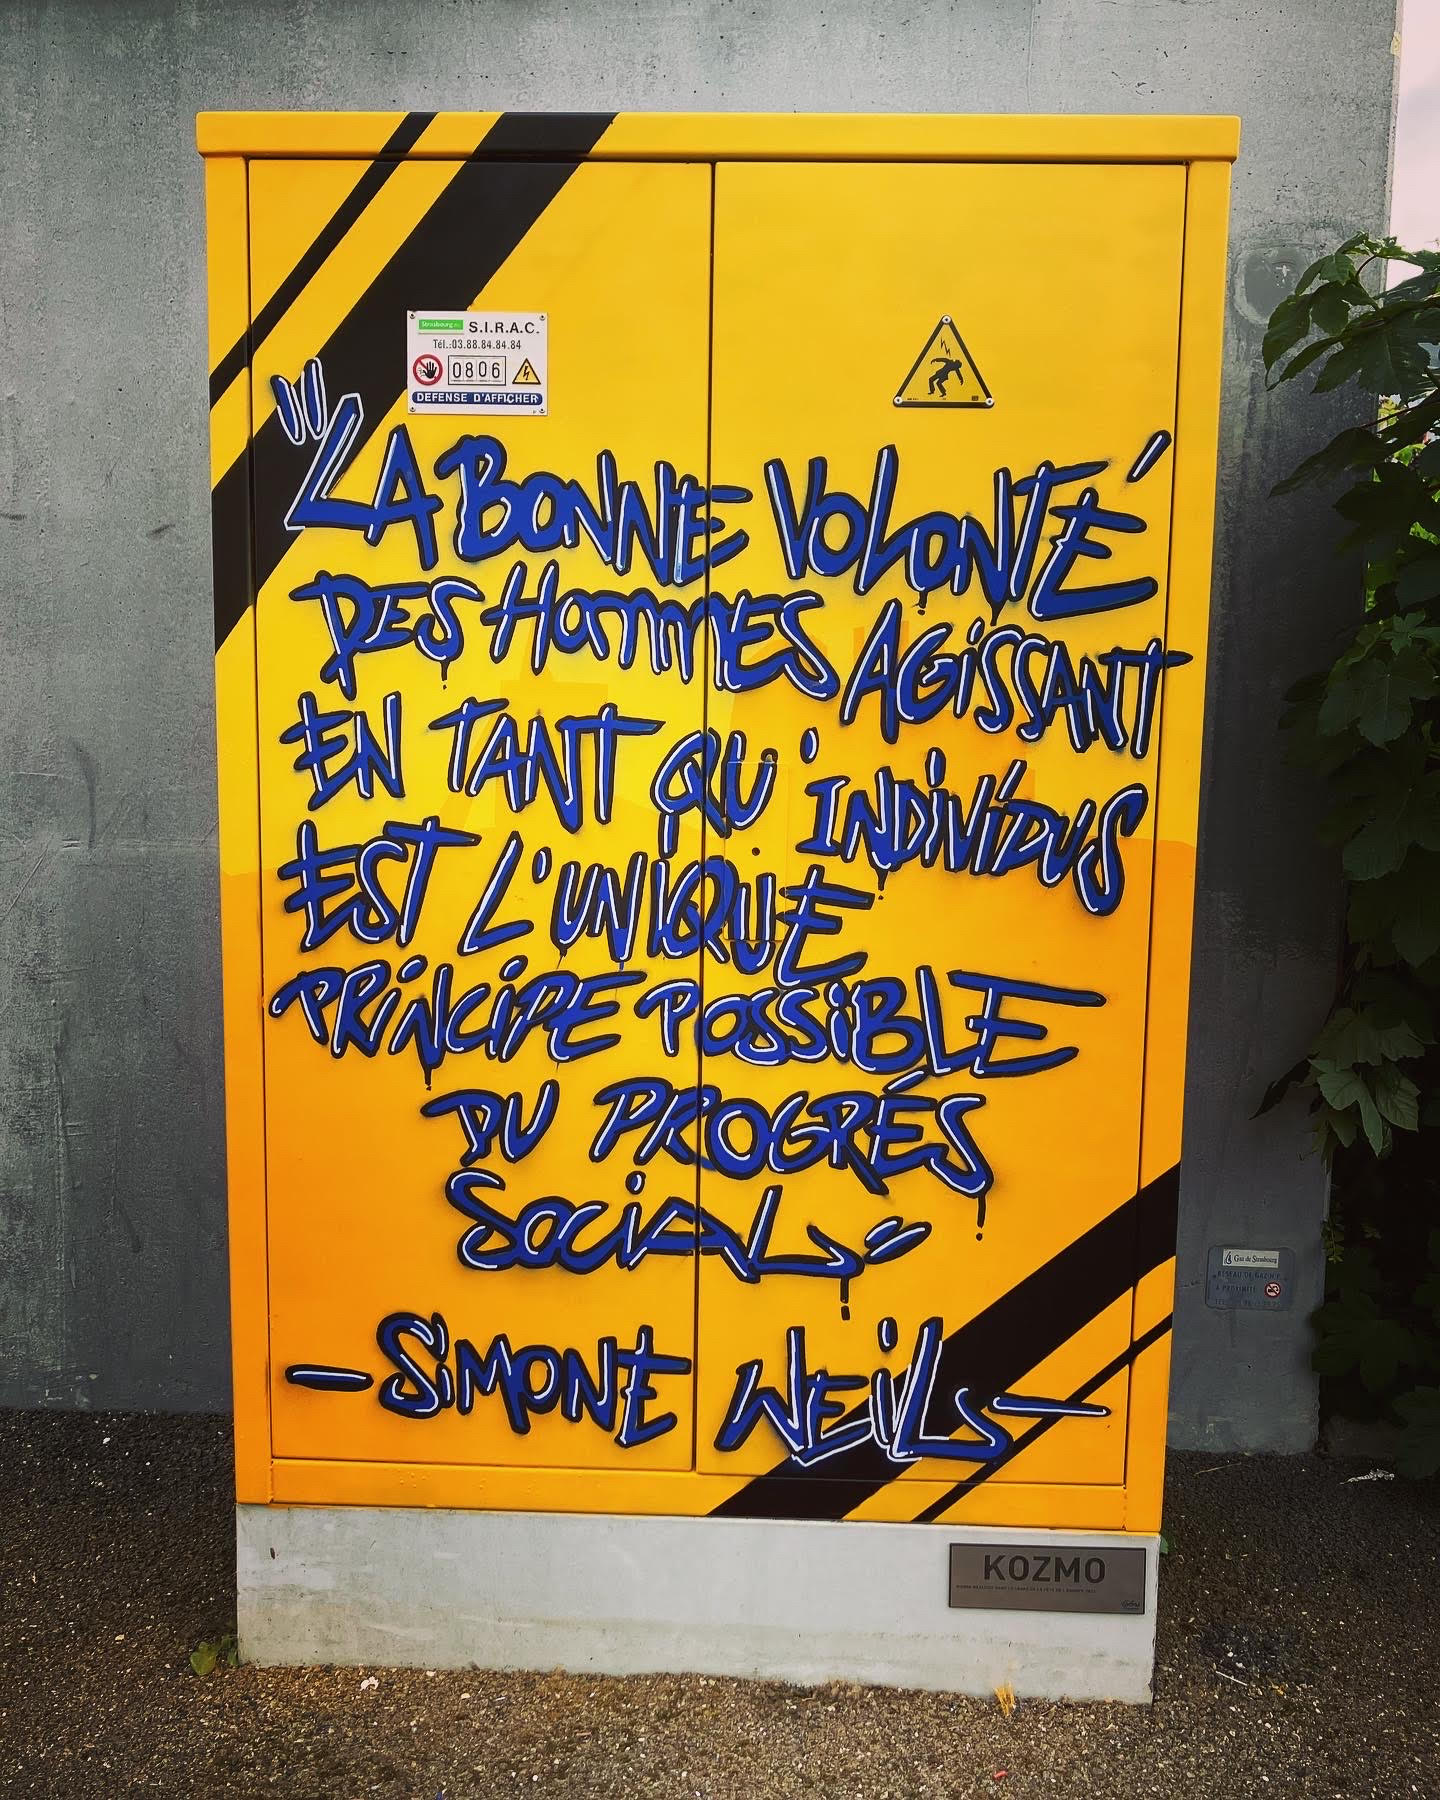 Strasbourg
S.I.R.A.C.
Tél.:03.88.84.84.84
0806
DEFENSE D'AFFICHER
"LA BONNE VOLONTÉ
DES HOMMES AGISSANT
EN TANT QU'INDIVIDUS
EST L'UNIQUE
PRINCIPE POSSIBLE
DU PROGRÉS
SOCIAL"
— SIMONE WEIL —
Gaz de Strasbourg
RÉSEAU DE GAZ
À PROXIMITÉ
KOZMO